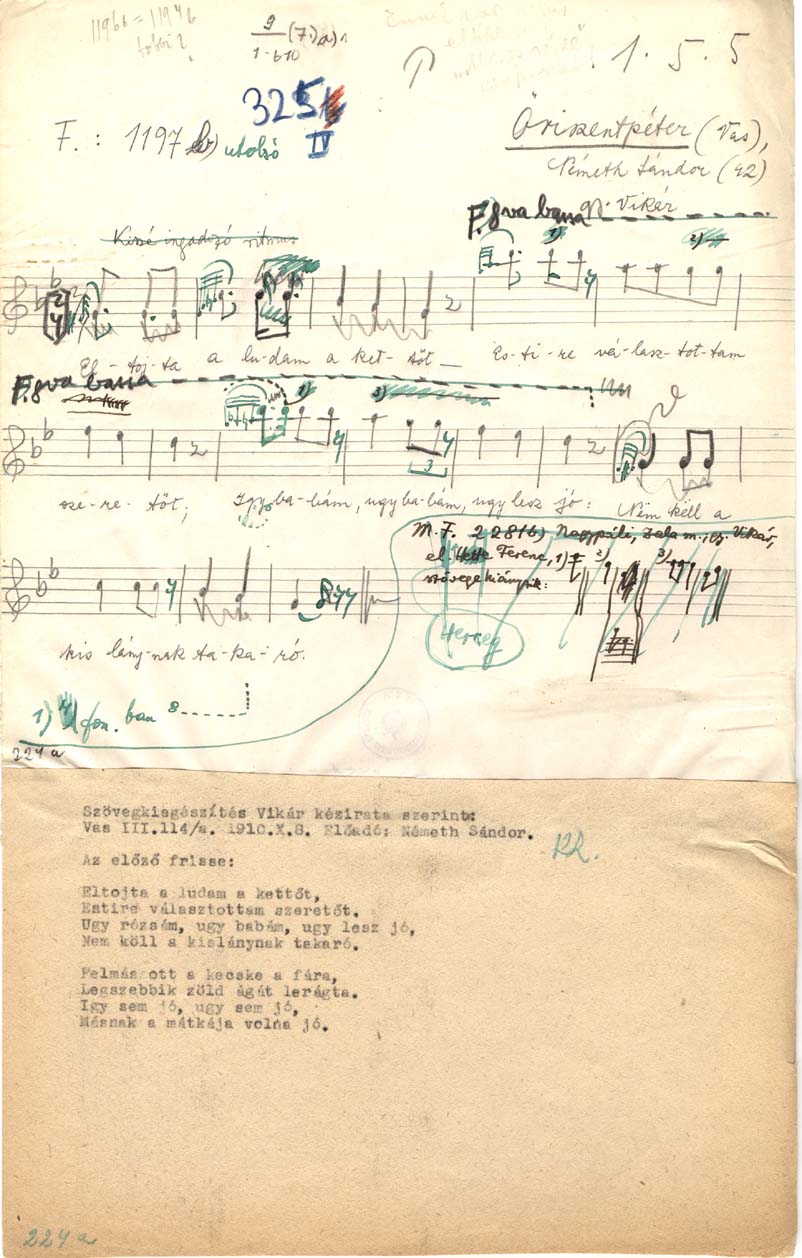 1196b = 1194b
9
1-b10
(7.)
1. 5. 5
325
IV
F. : 1197 b) utolsó
Őriszentpéter (Vas),
Németh Sándor (42)
gy. Vikár
F. 8va bassa
Kissé ingadozó ritmus
1) 2)
El-toj-ta a lu-dam a ket-tőt Es-ti-re vá-lasz-tot-tam
F. 8va bassa
1) 3)
3
sze-re-tőt; Igy ba-bám, ugy babám, ugy lesz jó: Nem kell a
M. F. 2281b) Nagypáli, Zala m., gy. Vikár,
el. Ferenc, 1) 2) 3)
szövege hiányzik:
Herceg
kis lány-nak ta-ka-ró.
1) fon. ban 8
224 a
Szövegkiegészítés Vikár kézirata szerint:
Vas III.114/a. 1910.X.8. Előadó: Németh Sándor.
Az előző frisse:
Eltojta a ludam a kettőt,
Estire választottam szeretőt.
Ugy rózsám, ugy babám, ugy lesz jó,
Nem köll a kislánynak takaró.
Felmás ott a kecske a fára,
Legszebbik zöld ágát lerágta.
Igy sem jó, ugy sem jó,
Másnak a mátkája volna jó.
224 a